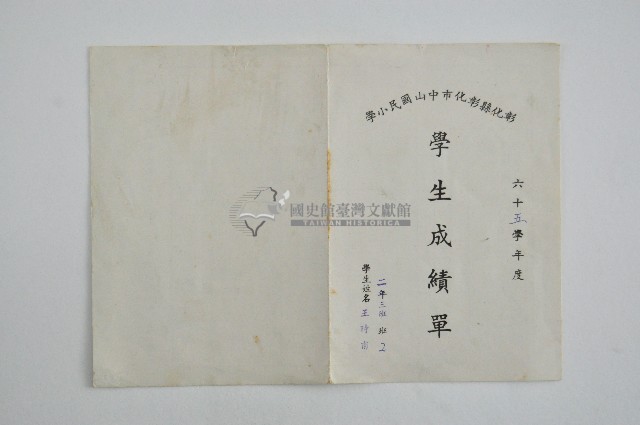 彰化縣彰化市中山國民小學
六十五學年度
學生成績單
二年三班 班 2
學生姓名 王詩
國史館臺灣文獻館
TAIWAN HISTORICA